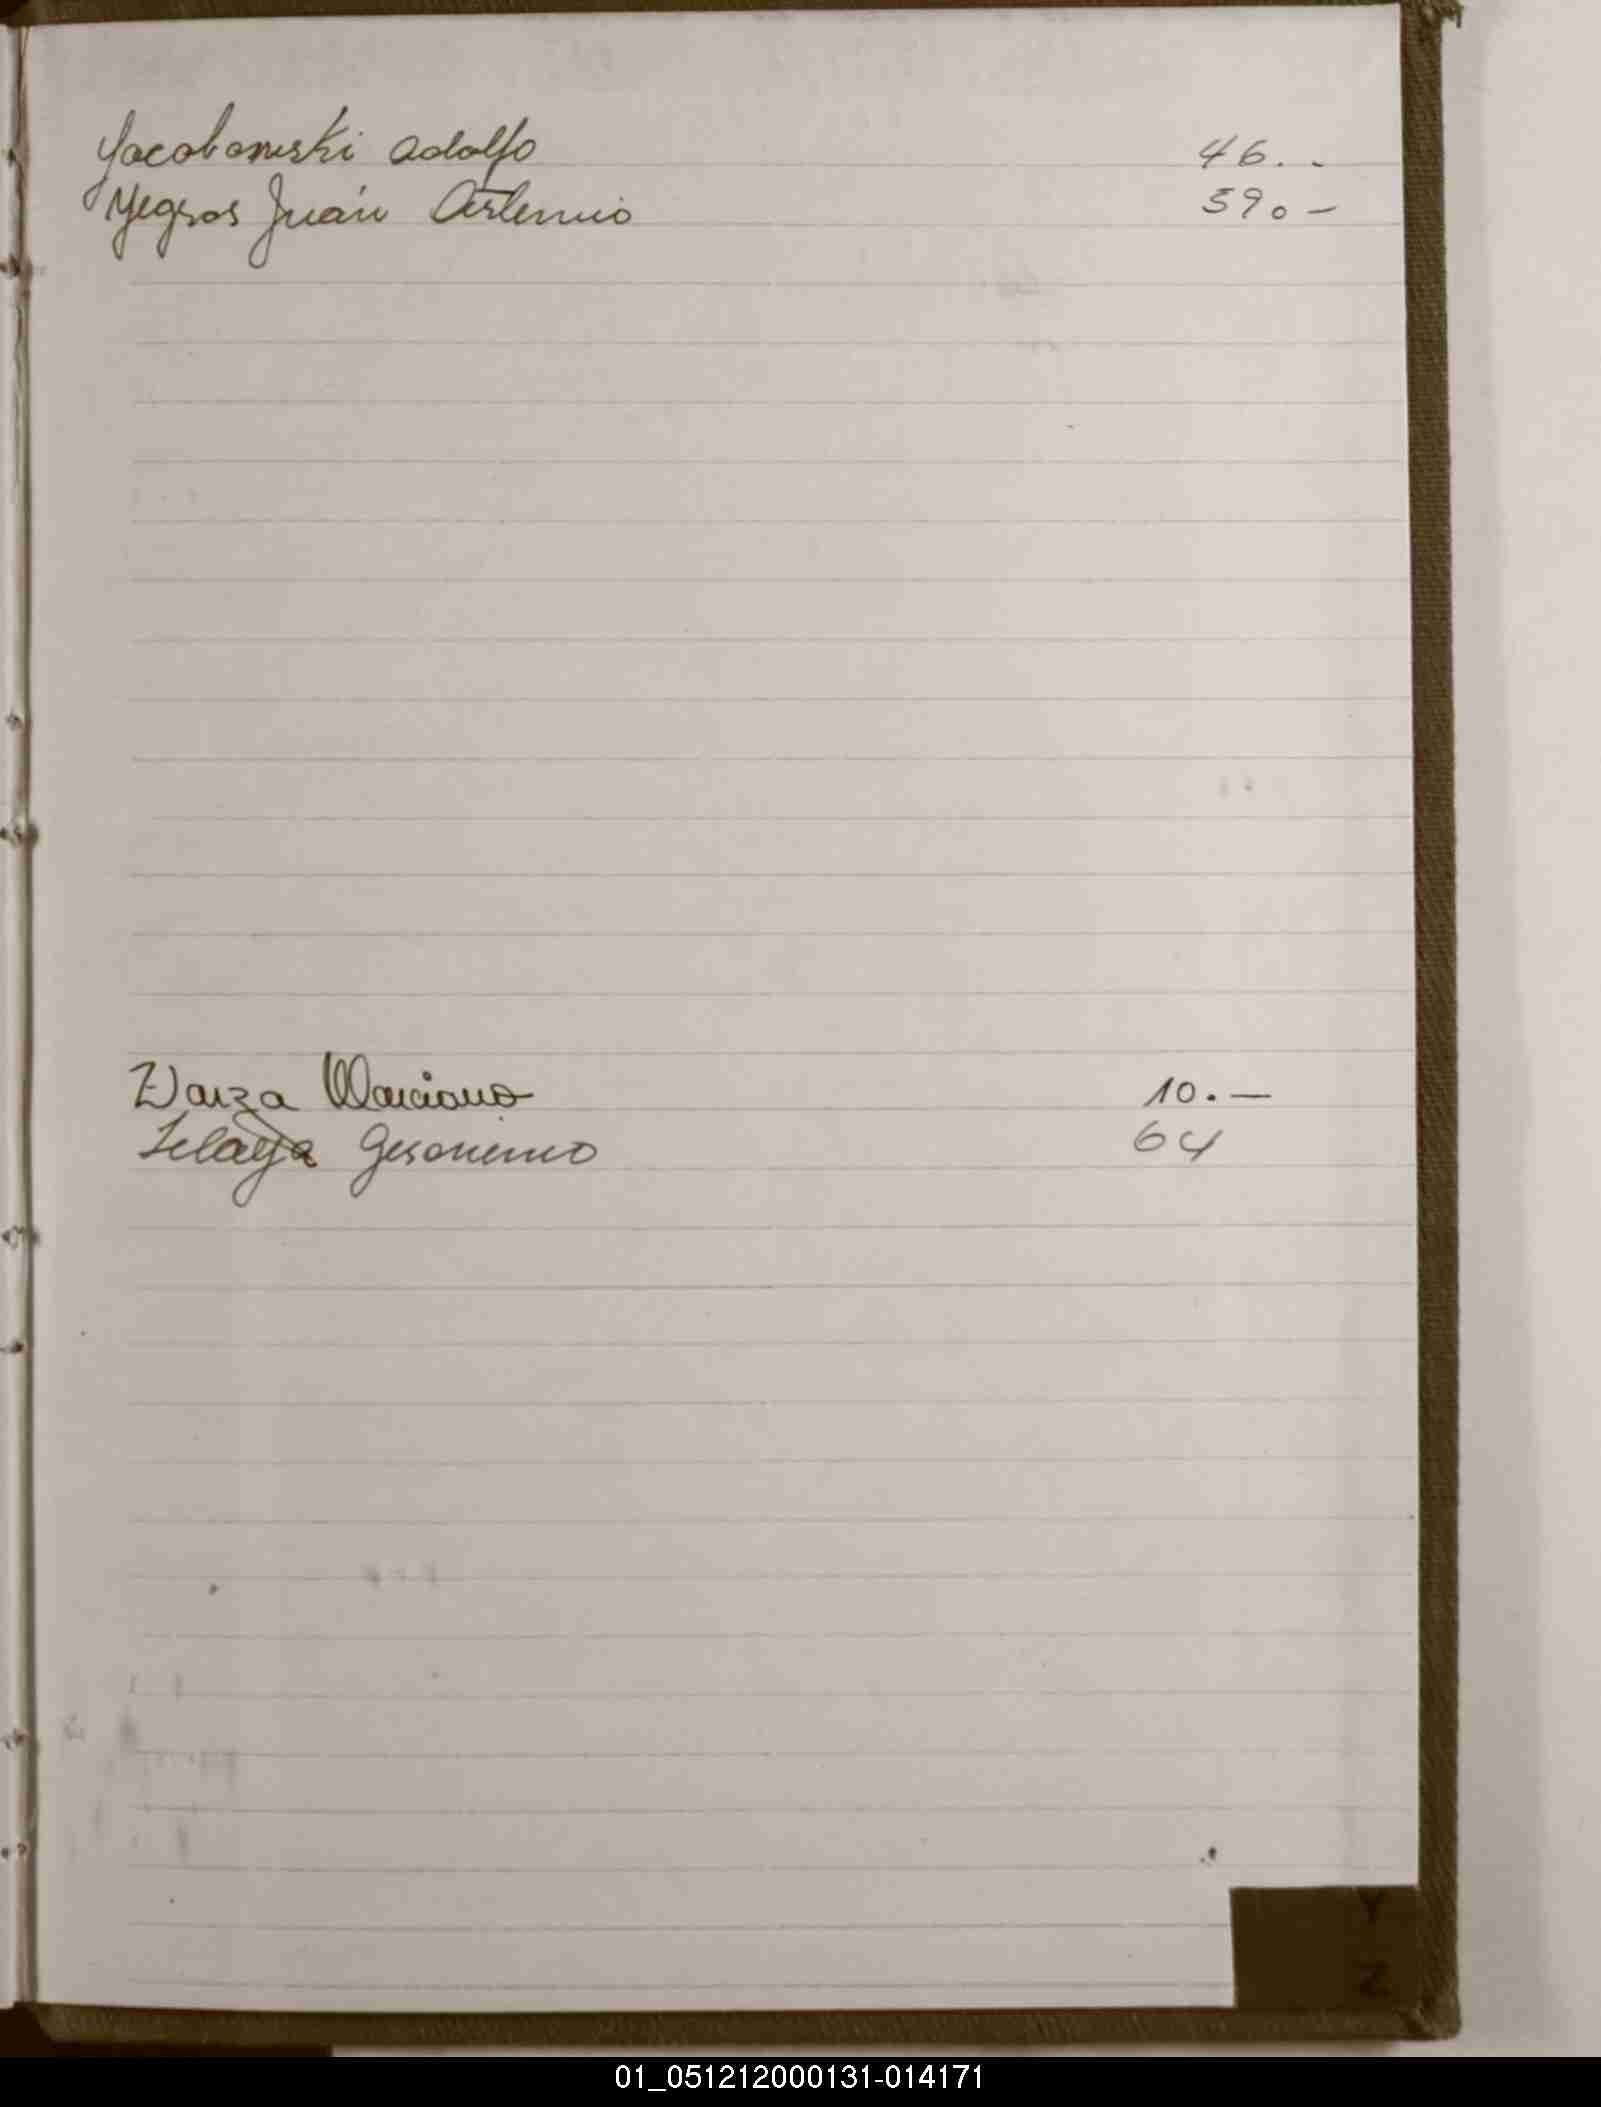 Yacobowski Adolfo 46. -
Yegros Juán Artemio 59. -
Zarza Marciano 10. —
Zelaya Geronimo 64
Y
Z
01_051212000131-014171